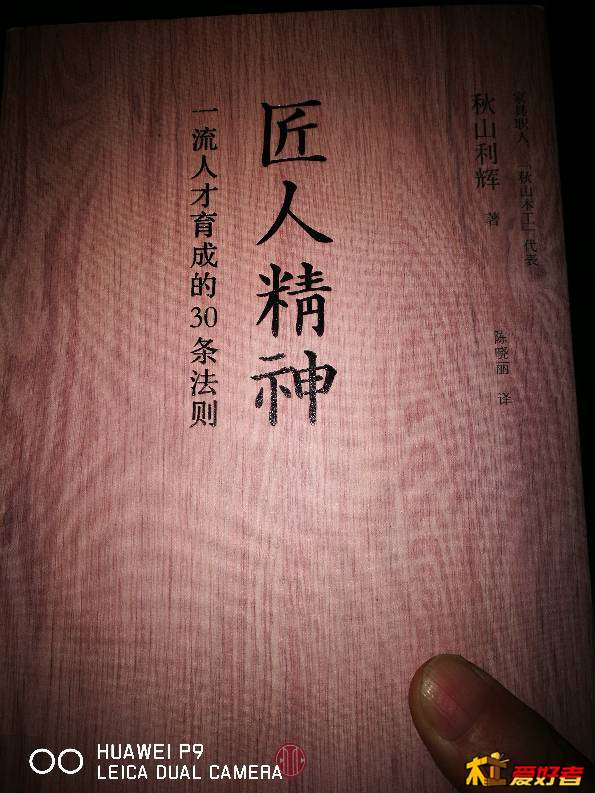 家具职人 「秋山木工」代表
秋山利辉 著
陈晓丽 译
匠人精神
一流人才育成的30条法则
HUAWEI P9
LEICA DUAL CAMERA
木工爱好者